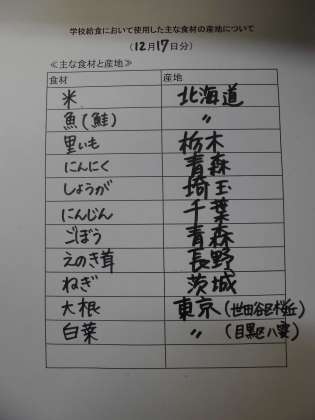 学校給食において使用した主な食材の産地について
(12月17日分)
≪主な食材と産地≫
食材 産地
米 北海道
魚(鮭) 〃
里いも 栃木
にんにく 青森
しょうが 埼玉
にんじん 千葉
ごぼう 青森
えのき茸 長野
ねぎ 茨城
大根 東京(世田谷区桜丘)
白菜 〃 (目黒区八雲)